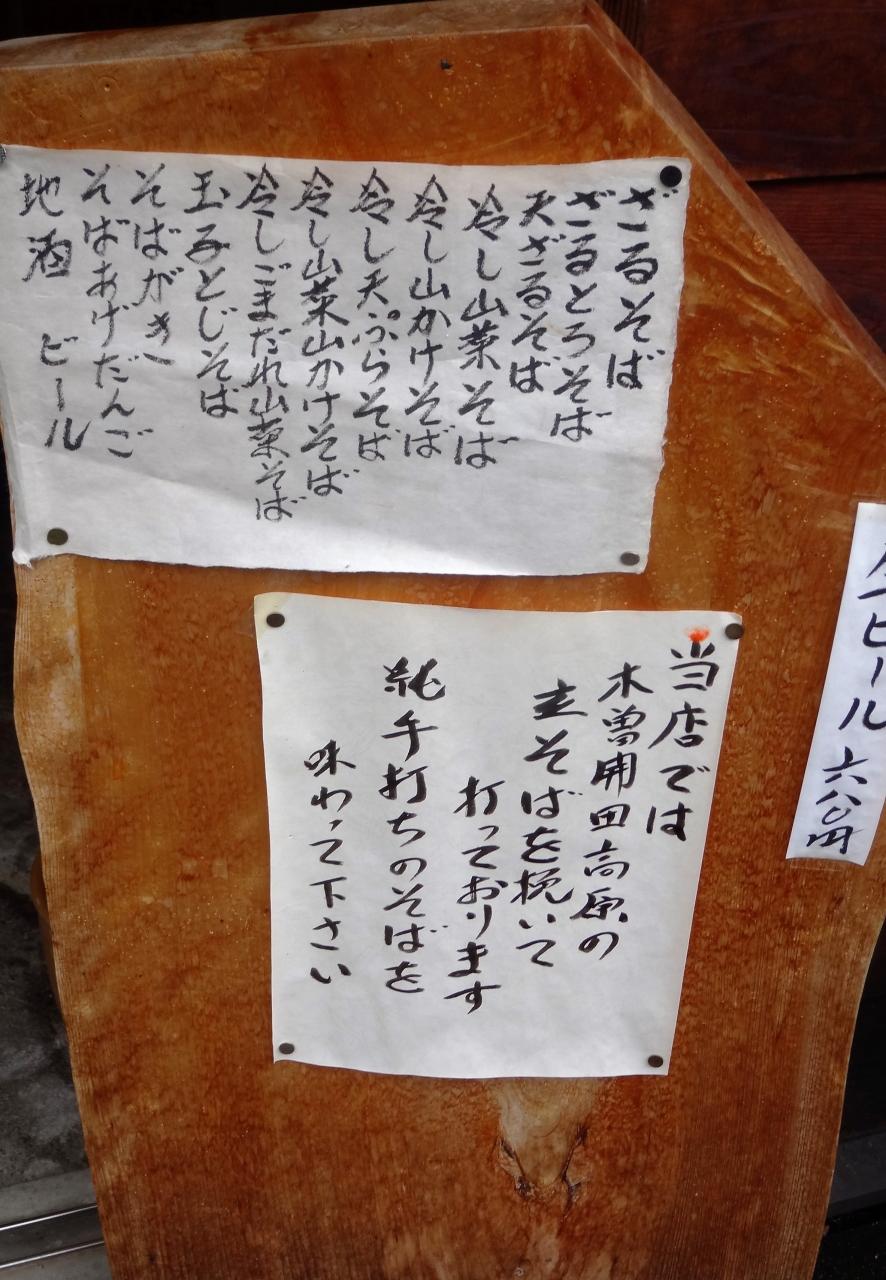 ざるそば
ざるとろそば
天ざるそば
冷し山菜そば
冷し山かけそば
冷し天ぷらそば
冷し山菜山かけそば
冷しごまだれ山菜そば
玉子とじそば
そばがき
そばあげだんご
地酒 ビール
当店では
木曽開田高原の
玄そばを挽いて
打っております
純手打ちのそばを
味わって下さい
ビール 六八〇円